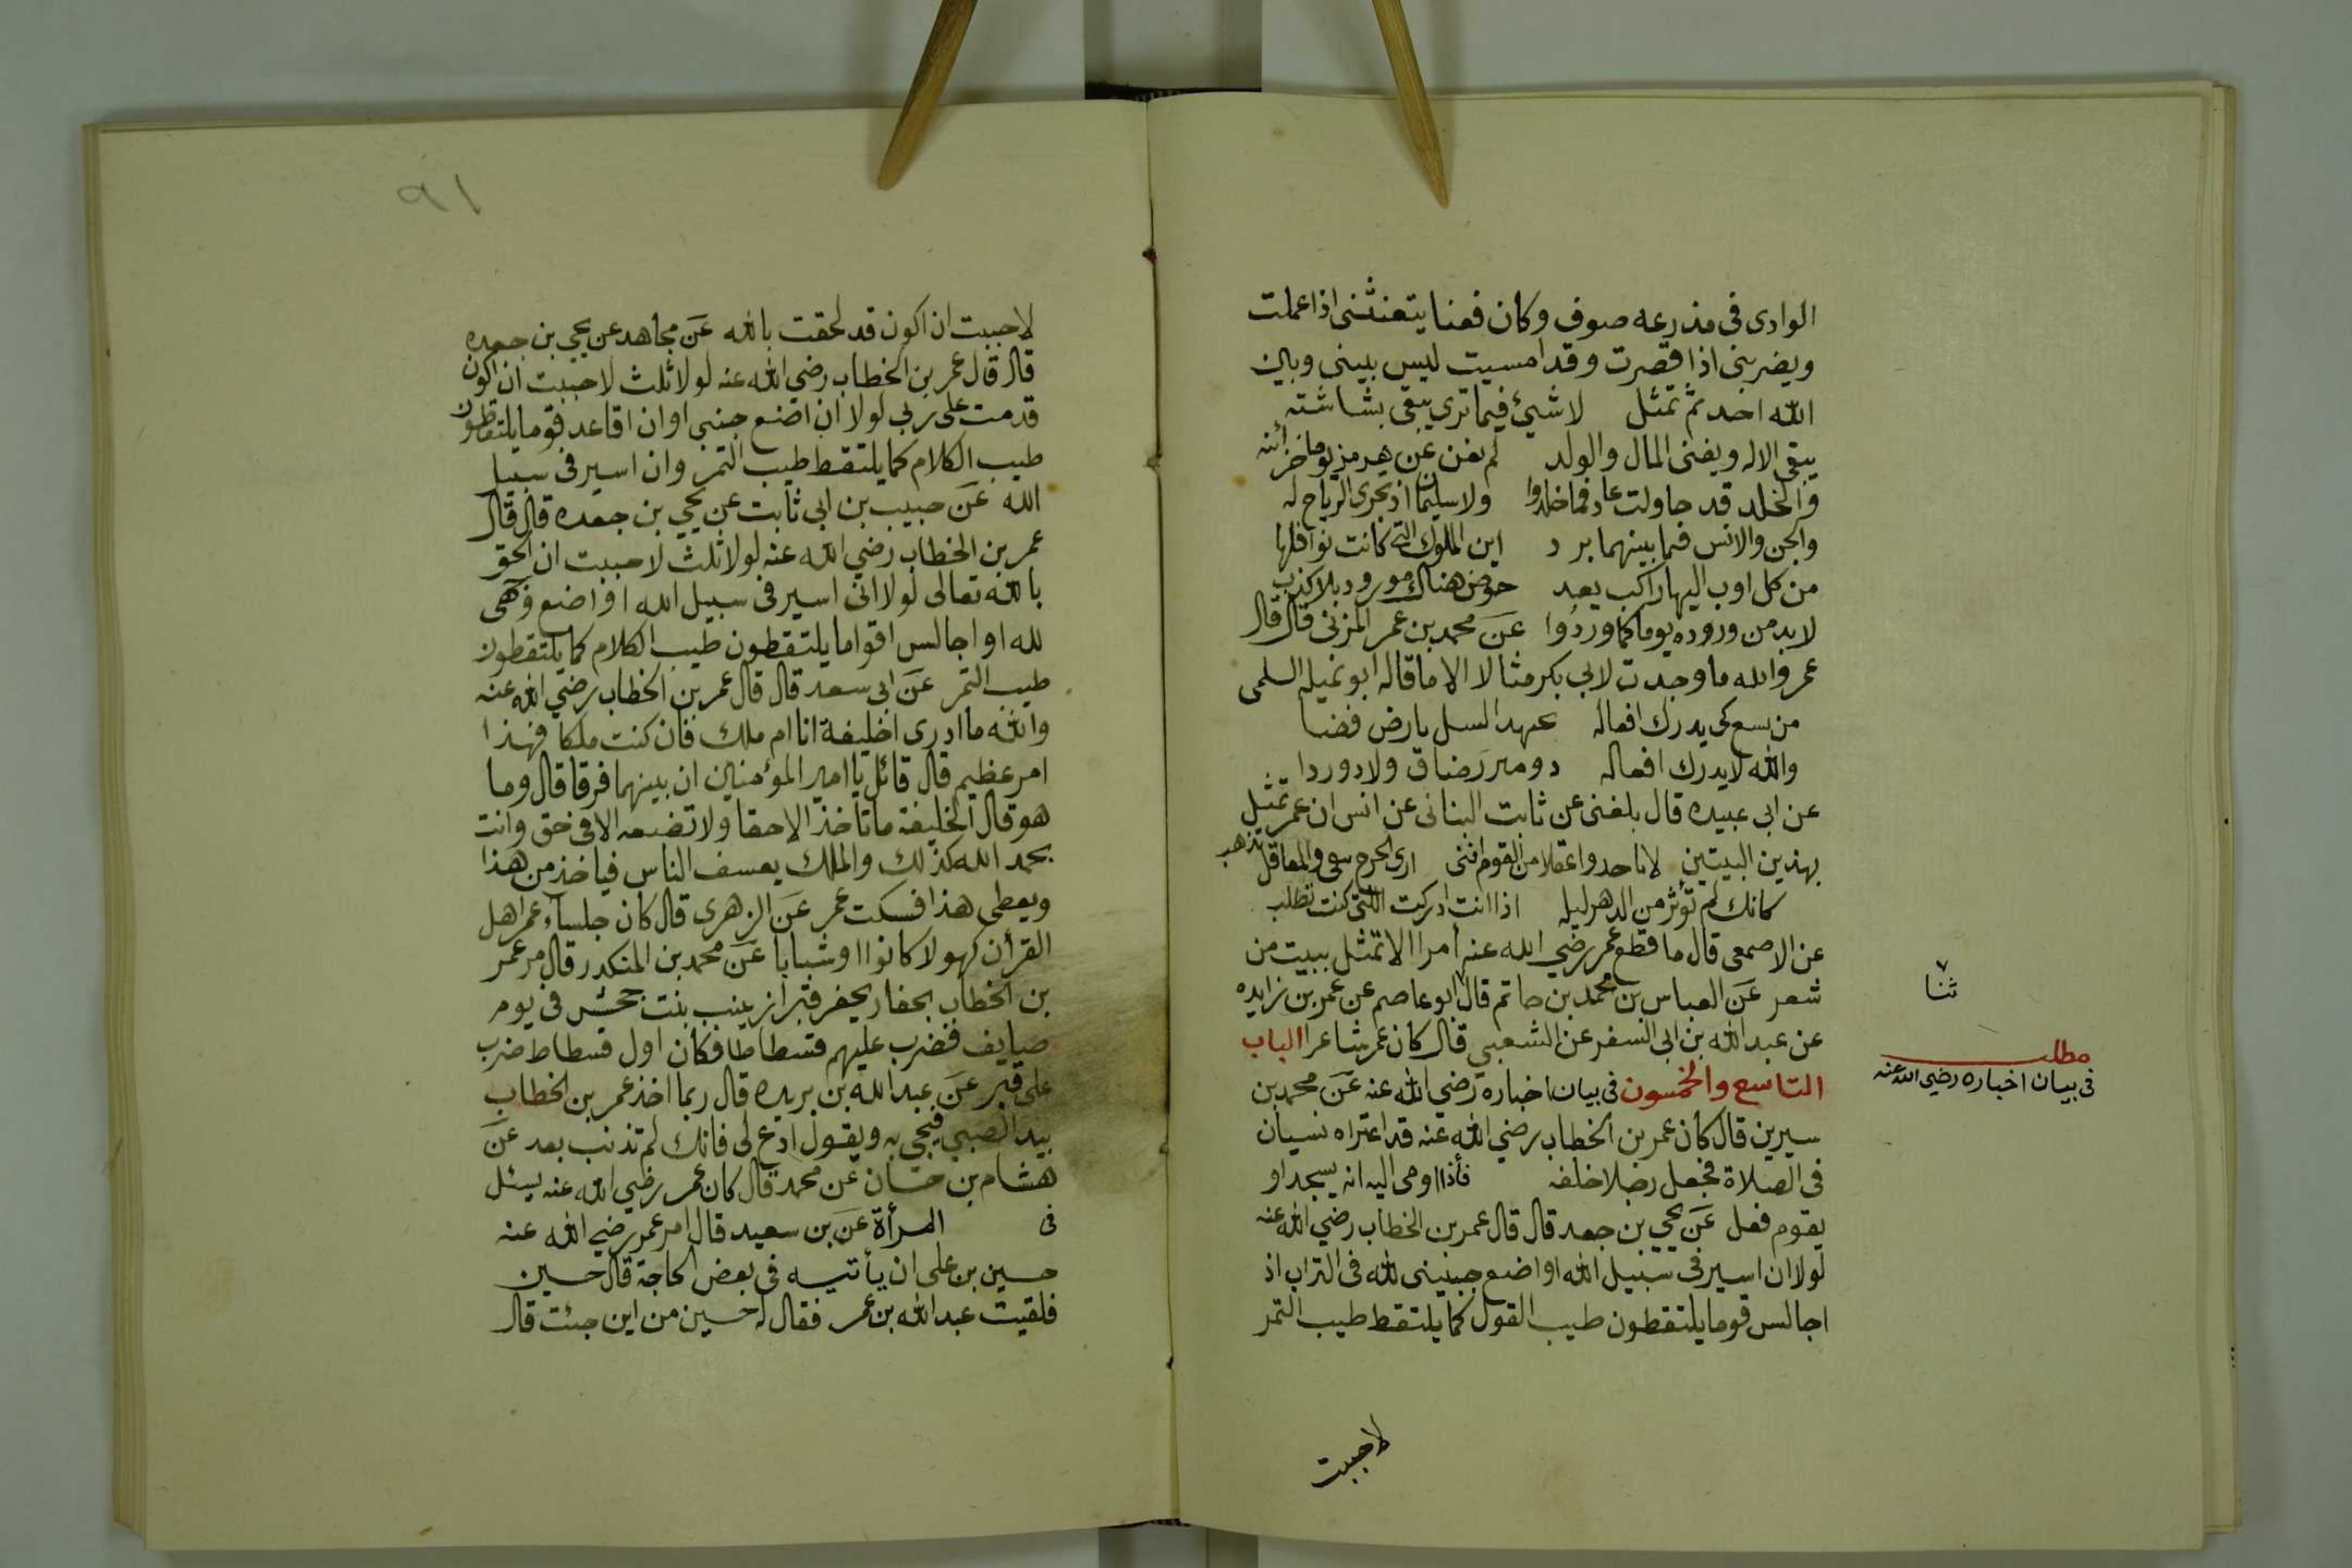 الوادى فى مذرعه صوف وكان فعنا يتعنثنى اذا عملت
ويضربنى اذا قصرت وقد امسيت ليس بينى وبين
الله احد ثم تمثل لا شئ فيما ترى يبقى بشاشته
يبقى الاله ويفنى المال والولد لم يغن عن هرمز يوما خزائنه
والخلد قد حاولت عاد فما خلدوا ولا سليمان اذ تجرى الرياح له
والجن والانس فيما بينهما برد اين الملوك التى كانت نوافلها
من كل اوب اليها راكب يعد حوض هنالك مورود بلا كذب
لابد من وروده يوما كما وردوا عن محمد بن عمر المزنى قال قال
عمر والله ما وجدت لابى بكر مثالا الا ما قاله ابو نميله السلمى
من يسع كى يدرك افعاله عهد السل بارض فضا
والله لا يدرك افعاله ذو ميزر ضاق ولا ذو ردا
عن ابى عبيده قال بلغنى عن ثابت البنانى عن انس ان عمر تمثيل
بهذين البيتين لا ناحدوا عقلا من القوم اننى ارى الجرح يبقى والمعاقل تذهب
كانك لم تؤثر من الدهر ليله اذا انت ادركت اللتى كنت تطلب
عن الاصمعى قال ما قطع عمر رضي الله عنه امرا الا تمثل ببيت من
شعر عن العباس بن محمد بن حاتم قال ابو عاصم عن عمر بن زايده
ثنا
عن عبد الله بن ابى السفر عن الشعبي قال كان عمر شاعرا الباب
مطلب
فى بيان اخباره رضي الله عنه
التاسع والخمسون فى بيان اخباره رضي الله عنه عن محمد بن
سيرين قال كان عمر بن الخطاب رضي الله عنه قد اعتراه نسيان
فى الصلاة فجعل رجلا خلفه فأذا اومى اليه انه يسجد او
يقوم فعل عن يحيي بن جعد قال قال عمر بن الخطاب رضي الله عنه
لولا ان اسير فى سبيل الله او اضع جبينى لله فى التراب اذ
اجالس قوما يلتقطون طيب القول كما يلتقط طيب التمر
لاحببت
٩١
لاحببت ان اكون قد لحقت بالله عن مجاهد عن يحيي بن جعده
قال قال عمر بن الخطاب رضي الله عنه لولا ثلث لاحببت ان اكون
قدمت على ربي لولا ان اضع جبنى او ان اقاعد قوما يلتقطون
طيب الكلام كما يلتقط طيب التمر وان اسير فى سبيل
الله عن حبيب بن ابى ثابت عن يحيي بن جعده قال قال
عمر بن الخطاب رضي الله عنه لولا ثلث لاحببت ان الحق
بالله تعالى لولا انى اسير فى سبيل الله او اضع وجهى
لله او اجالس اقواما يلتقطون طيب الكلام كما يلتقطون
طيب التمر عن ابى سعد قال قال عمر بن الخطاب رضي الله عنه
والله ما ادرى اخليفة انا ام ملك فان كنت ملكا فهذا
امر عظيم قال قائل يا امير المؤمنين ان بينهما فرقا قال وما
هو قال الخليفة ما تأخذ الا حقا ولا تضعه الا فى حق وانت
بحمد الله كذلك والملك يعسف الناس فياخذ من هذا
ويعطى هذا فسكت عمر عن الزهرى قال كان جلساء عمر اهل
القرأن كهولا كانوا او شبابا عن محمد بن المنكدر قال مر عمر
بن الخطاب بحفار يحفر قبرا زينب بنت جحش فى يوم
صايف فضرب عليهم فسطاطا فكان اول فسطاط ضرب
على قبر عن عبد الله بن بريده قال ربما اخذ عمر بن الخطاب
بيد الصبي فيجى به ويقول ادع لى فانك لم تذنب بعد عن
هشام بن حسان عن محمد قال كان عمر رضي الله عنه يسئل
فى المرأة عن بن سعيد قال امر عمر رضي الله عنه
حسين بن على ان يأتيه فى بعض الحاجة قال حسين
فلقيت عبد الله بن عمر فقال له حسين من اين جئت قال